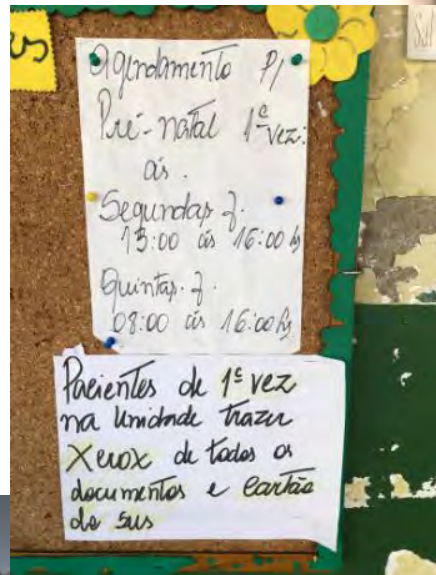 es
Agendamento P/
Pré-natal 1ª vez:
ás.
Segundas f.
13:00 ás 16:00 hs
Quintas. f.
08:00 ás 16:00 hs
Pacientes de 1ª vez
na Unidade trazer
Xerox de todos os
documentos e cartão
do SUS